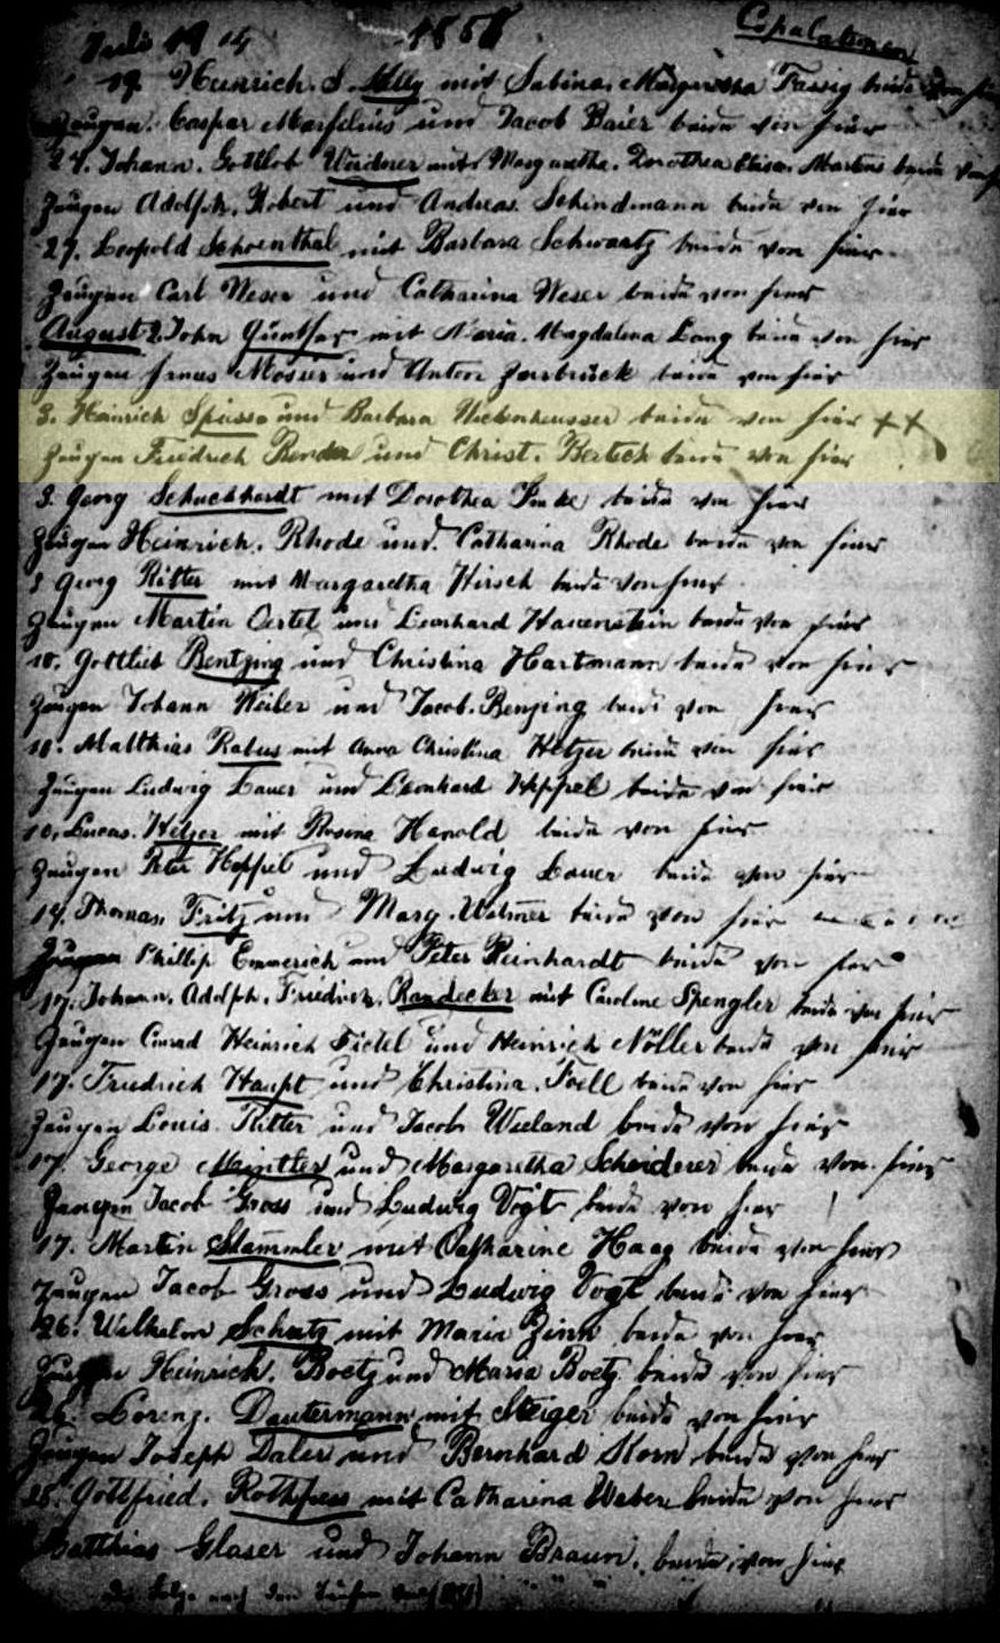 Juli 19 1858 Copulationen
19. Heinrich. S. mit Sabina. Margaretha Fassig beide von hier
Zeugen. Caspar und Jacob Baier beide von hier
24. Johann. Gottlob Weidner mit Margaretha. Dorothea Elisa. Martens beide von
Zeugen Adolph. Hobert und Andreas. Schindmann beide von hier
27. Leopold Schoenthal mit Barbara Schwartz beide von hier
Zeugen Carl Weser und Catharina Weser beide von hier
August 2. John Günther mit Maria. Magdalena Lang beide von hier
Zeugen Moser und Anton beide von hier
3. Heinrich Spiess und Barbara beide von hier ++
Zeugen Friedrich Render und Christ. Bertsch beide von hier
3. Georg Schuckhardt mit Dorothea beide von hier
Zeugen Heinrich. Rhode und. Catharina Rhode beide von hier
Georg Ritter mit Margaretha Hirsch beide von hier
Zeugen Martin Oertel und Leonhard Hauenstein beide von hier
10. Gottlieb Bentzing und Christina Hartmann beide von hier
Zeugen Johann Weiler und Jacob. Benzing beide von hier
10. Matthias Rabus mit Anna Christina Hetzer beide von hier
Zeugen Ludwig Bauer und Leonhard Heppel beide von hier
10. Lucas. Hetzer mit Rosina Harold beide von hier
Zeugen Peter Heppel und Ludwig Bauer beide von hier
14. Thomas. Fritz und Marg. Wolmer beide von hier
Zeugen Phillip Emmerich und Peter Reinhardt beide von hier
17. Johann. Adolph. Friedrich. Randecker mit Caroline Spengler beide von hier
Zeugen Conrad Heinrich Fidel und Heinrich Nöller beide von hier
17. Friedrich Haupt und Christina. Foell beide von hier
Zeugen Louis Ritter und Jacob Wieland beide von hier
17. George Meintler und Margaretha Scheiderer beide von hier
Zeugen Jacob Gross und Ludwig Vogt beide von hier
17. Martin Stammler mit Catharine Haag beide von hier
Zeugen Jacob Gross und Ludwig Vogt beide von hier
26. Wilhelm Schutz mit Maria Zinn beide von hier
Zeugen Heinrich. Boetz und Maria Boetz beide von hier
Lorenz. Dautermann mit Steiger beide von hier
Zeugen Joseph Daler und Bernhard Korn beide von hier
28. Gottfried. Rothfuss mit Catharina Weber beide von hier
Matthias Glaser und Johann Braun. beide von hier